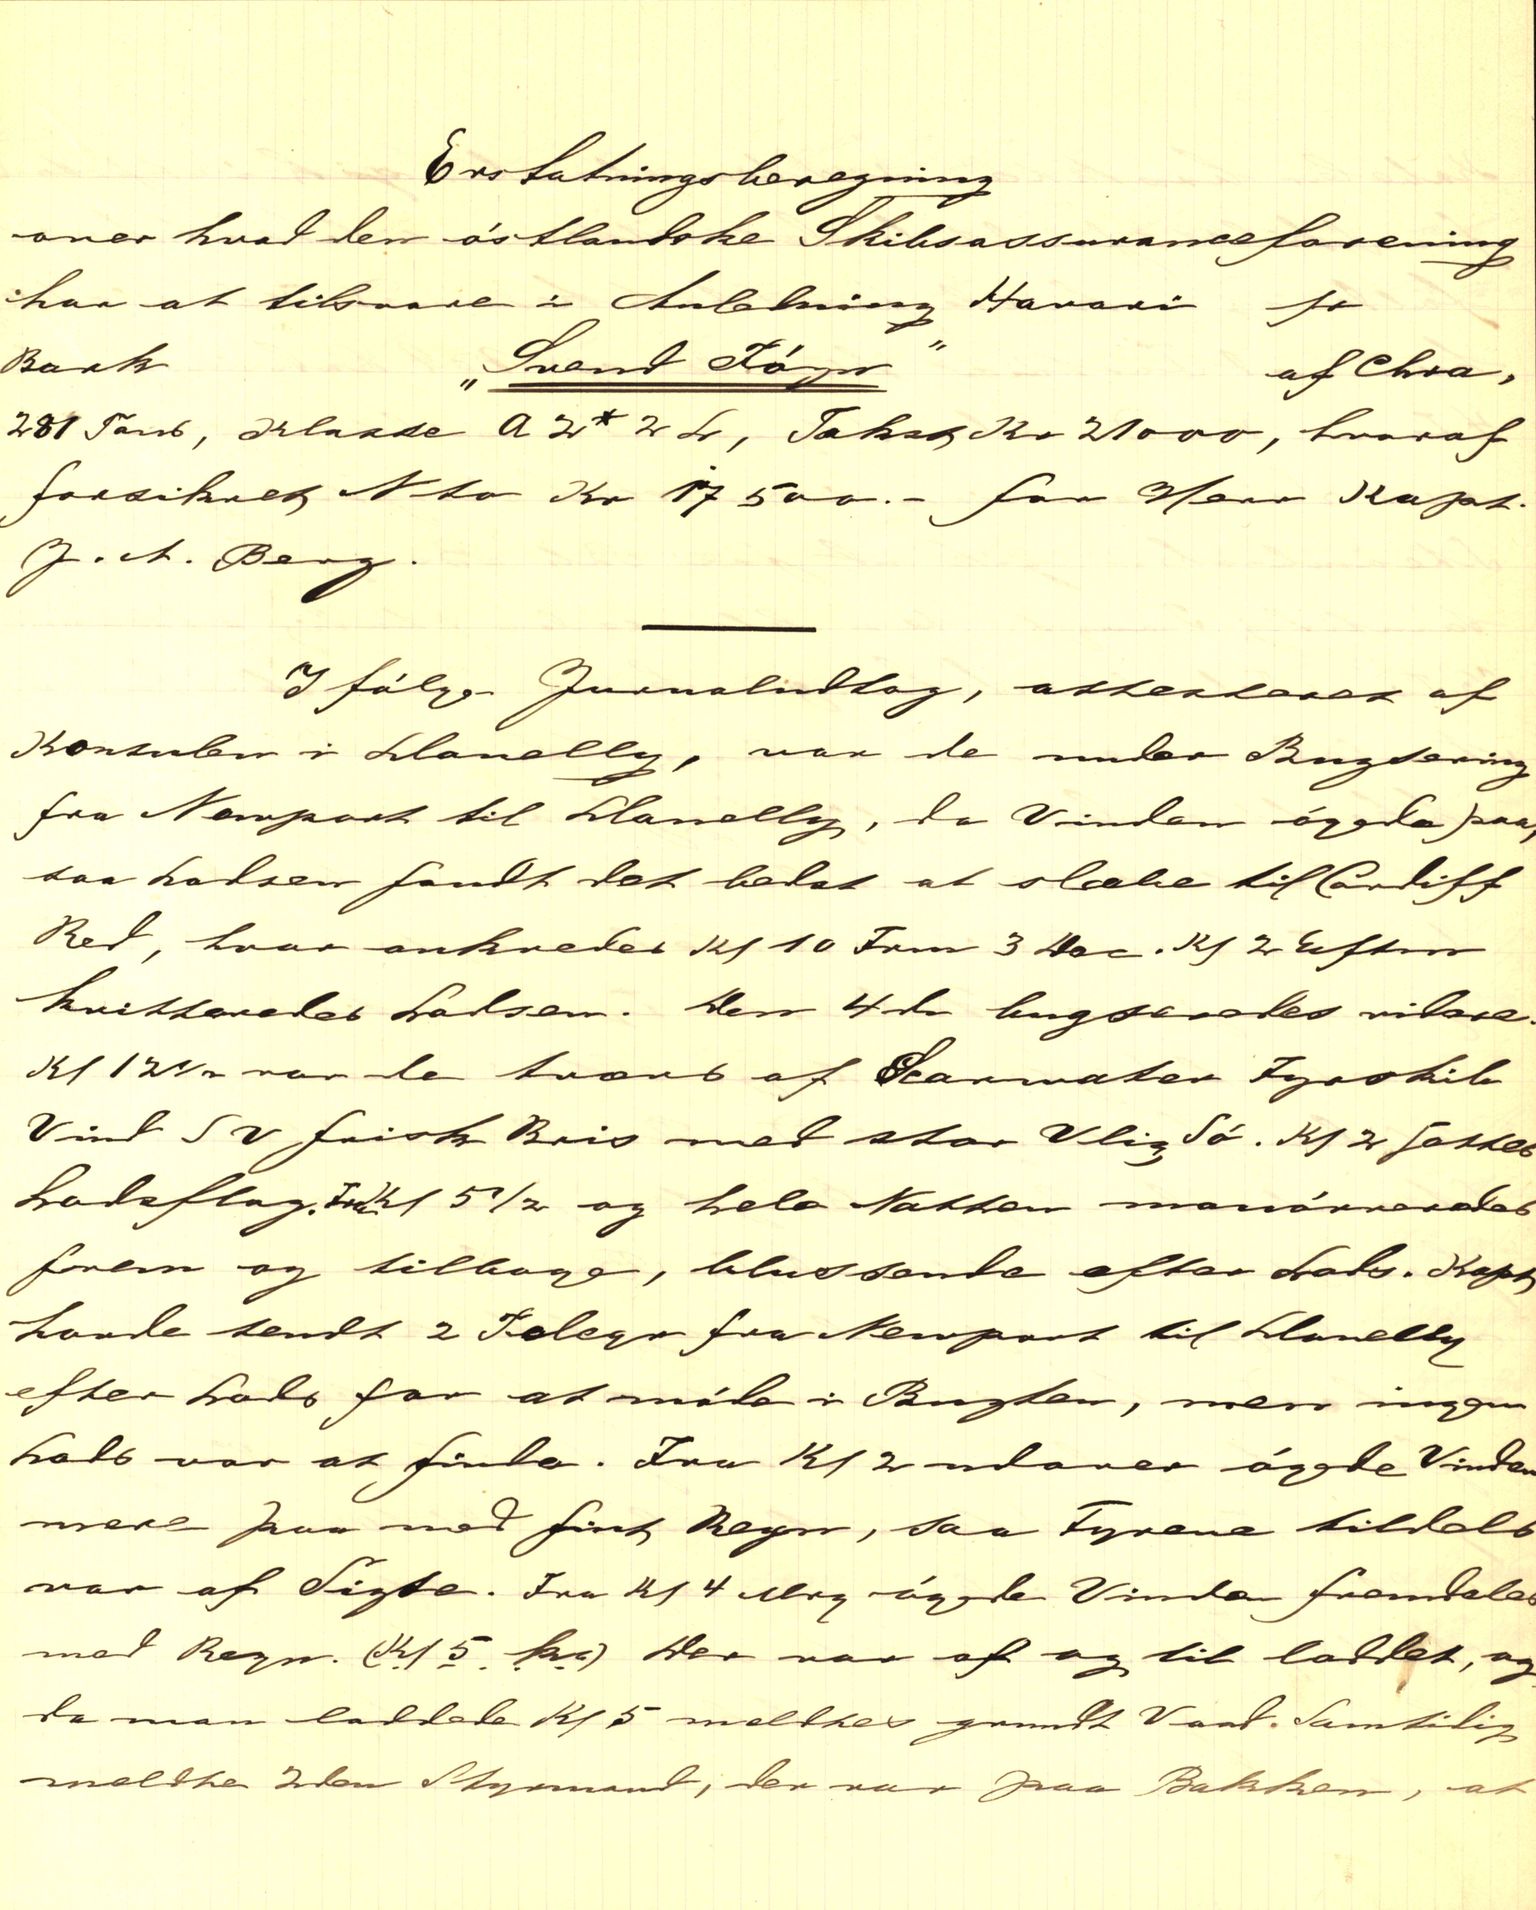 Erstatningsberegning
over hvad den östlandske Skibsassuranceforening
har at tilsvare i Anledning Havari pr
Bark „Svend Föyn" af Chra,
281 Tons, Klasse A 2* 2 L, Takst Kr 21000, hvoraf
forsikret Nto Kr 17500.- for Herr Kapt.
J. A. Berg.
Ifölge Jurnaludtog, attesteret af
Konsulen i Llanelly, var de under Bugsering
fra Newport til Llanelly, da Vinden ögede paa,
saa Lodsen fandt det bedst at slæbe til Cardiff
Red, hvor ankredes Kl 10 Frm 3 Dec. Kl 2 Eftm
kvitteredes Lodsen. Den 4de bugseredes videre.
Kl 12½ var de tværs af Scarwater Fyrskib
Vind SV frisk Bris med stor Vlig Sö. Kl 2 sattes
Lodsflag. Fra Kl 5 1/2 og hele Natten manövreredes
frem og tilbage, blussende efter Lods. Kapt
havde sendt 2 Telegr fra Newport til Llanelly
efter Lods for at möde i Bugten, men ingen
Lods var at finde. Fra Kl 2 udover ögede Vinden
mere paa med fint Regn, saa Fyrene tildels
var af Sigte. Fra Kl 4 Mrg ögede Vinden fremdeles
med Regn. (Kl 5 ) Der var af og til loddet, og
da man loddede Kl 5 meldtes grundt Vand. Samtidig
meldte 2den Styrmand, der var paa Bakken, at